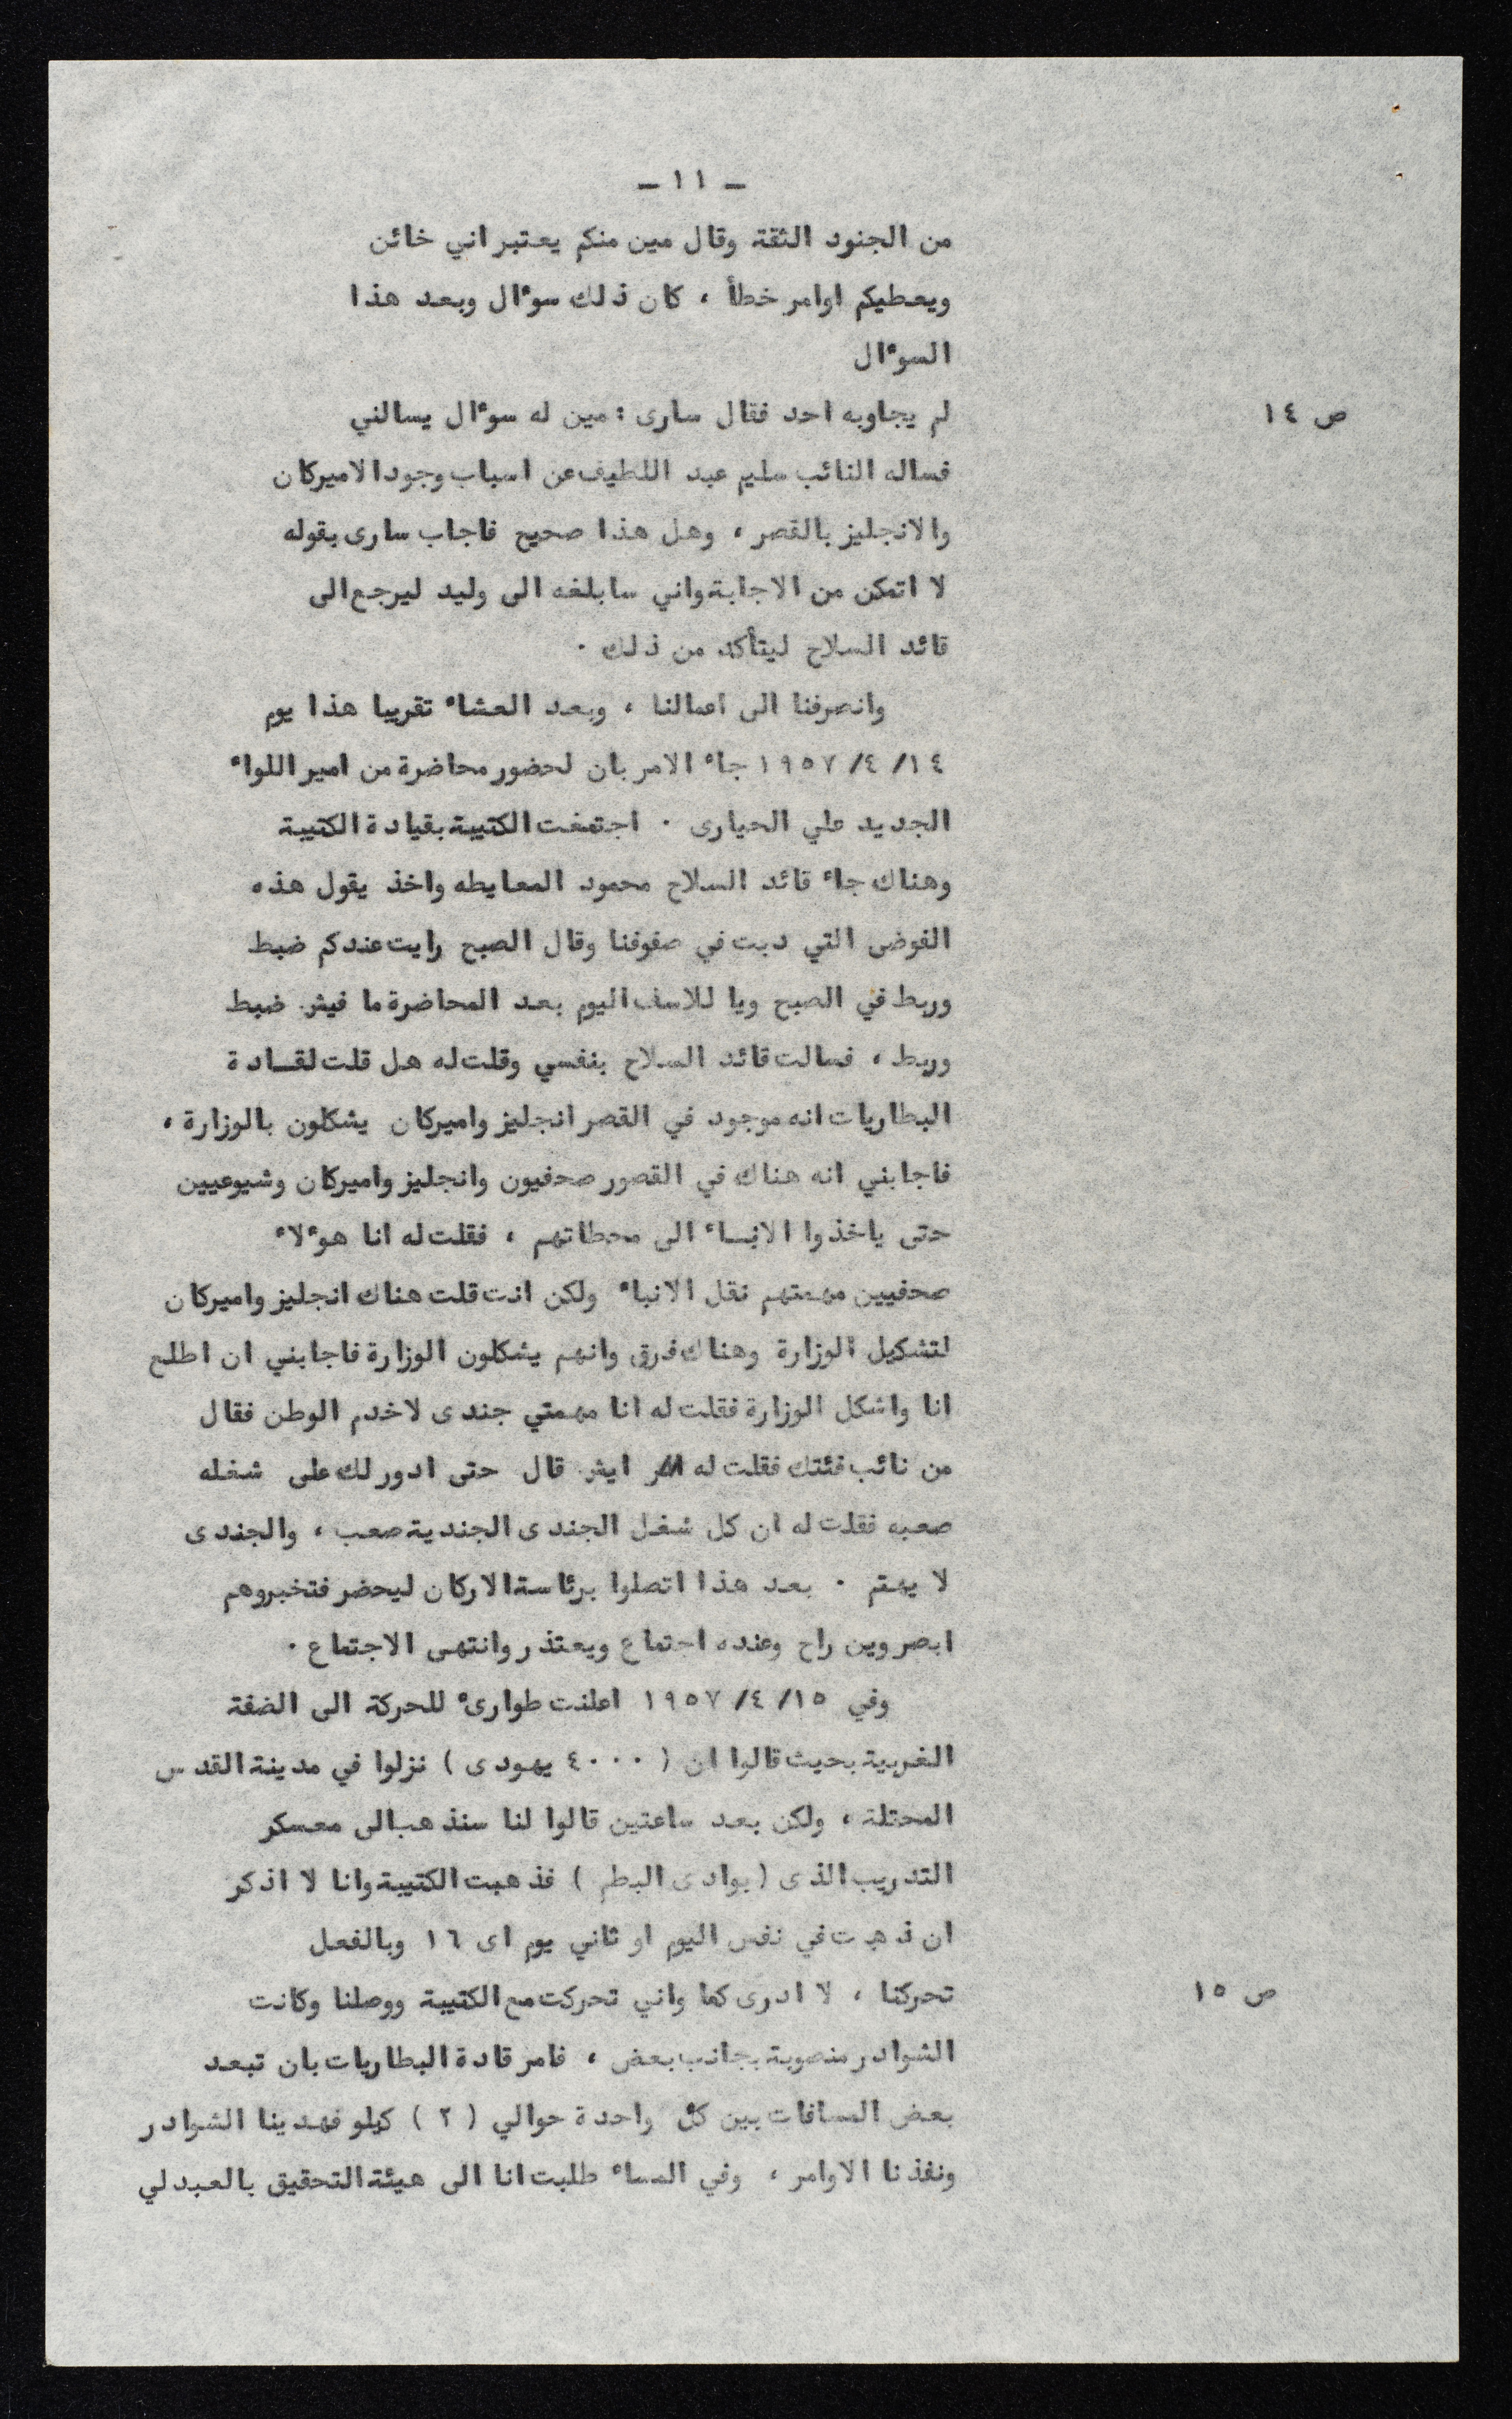 - ١١ -
من الجنود الثقة وقال مين منكم يعتبر اني خائن
ويعطيكم اوامر خطأ ، كان ذلك سوءال وبعد هذا
السوءال
ص ١٤ لم يجاوبه احد فقال سارى : مين له سوءال يسالني
فساله النائب سليم عبد اللطيف عن اسباب وجود الاميركان
والانجليز بالقصر ، وهل هذا صحيح فاجاب سارى بقوله
لا اتمكن من الاجابة واني سابلغه الى وليد ليرجع الى
قائد السلاح ليتأكد من ذلك .
وانصرفنا الى اعمالنا ، وبعد العشاء تقريبا هذا يوم
١٤/ ٤/ ١٩٥٧ جاء الامر بان لحضور محاضرة من امير اللواء
الجديد علي الحيارى . اجتمعت الكتيبة بقيادة الكتيبة
وهناك جاء قائد السلاح محمود المعايطه واخذ يقول هذه
الفوضى التي دبت في صفوفنا وقال الصبح رايت عندكم ضبط
وربط في الصبح ويا للاسف اليوم بعد المحاضرة ما فيش ضبط
وربط ، فسالت قائد السلاح بنفسي وقلت له هل قلت لقادة
البطاريات انه موجود في القصر انجليز واميركان يشكلون بالوزارة ،
فاجابني انه هناك في القصور صحفيون وانجليز واميركان وشيوعيين
حتى ياخذوا الانباء الى محطاتهم ، فقلت له انا هوءلاء
صحفيين مهمتهم نقل الانباء ولكن انت قلت هناك انجليز واميركان
لتشكيل الوزارة وهناك فرق وانهم يشكلون الوزارة فاجابني ان اطلع
انا واشكل الوزارة فقلت له انا مهمتي جندى لاخدم الوطن فقال
من نائب فئتك فقلت له ايش قال حتى ادور لك على شغله
صعبه فقلت له ان كل شغل الجندى الجندية صعب ، والجندى
لا يهتم . بعد هذا اتصلوا برئاسة الاركان ليحضر فتخبروهم
ابصر وين راح وعنده اجتماع ويعتذر وانتهى الاجتماع .
وفي ١٥/ ٤/ ١٩٥٧ اعلنت طوارىء للحركة الى الضفة
الغربية بحيث قالوا ان ( ٤٠٠٠ يهودى ) نزلوا في مدينة القدس
المحتلة ، ولكن بعد ساعتين قالوا لنا سنذهب الى معسكر
التدريب الذى ( بوادى البطم ) فذهبت الكتيبة وانا لا اذكر
ان ذهبت في نفس اليوم او ثاني يوم اى ١٦ وبالفعل
ص ١٥ تحركنا ، لا ادرى كما واني تحركت مع الكتيبة ووصلنا وكانت
الشوادر منصوبة بجانب بعض ، فامر قادة البطاريات بان تبعد
بعض المسافات بين كل واحدة حوالي ( ٢ ) كيلو فهدينا الشوادر
ونفذنا الاوامر ، وفي المساء طلبت انا الى هيئة التحقيق بالعبدلي